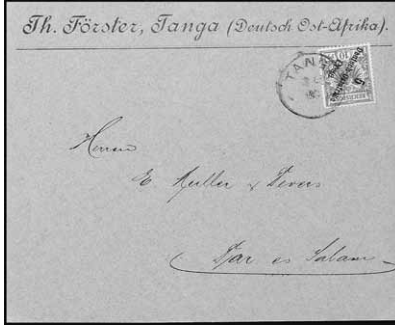 Th. Förster, Tanga (Deutsch Ost-Afrika).
TANGA
Herren
E. Müller & Devers
Dar es Salam